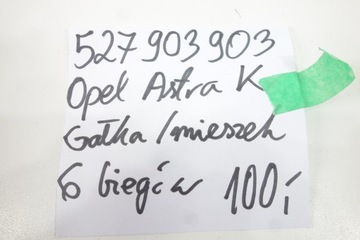 527 903 903
Opel Astra K
Gałka / mieszek
6 biegów 100,-